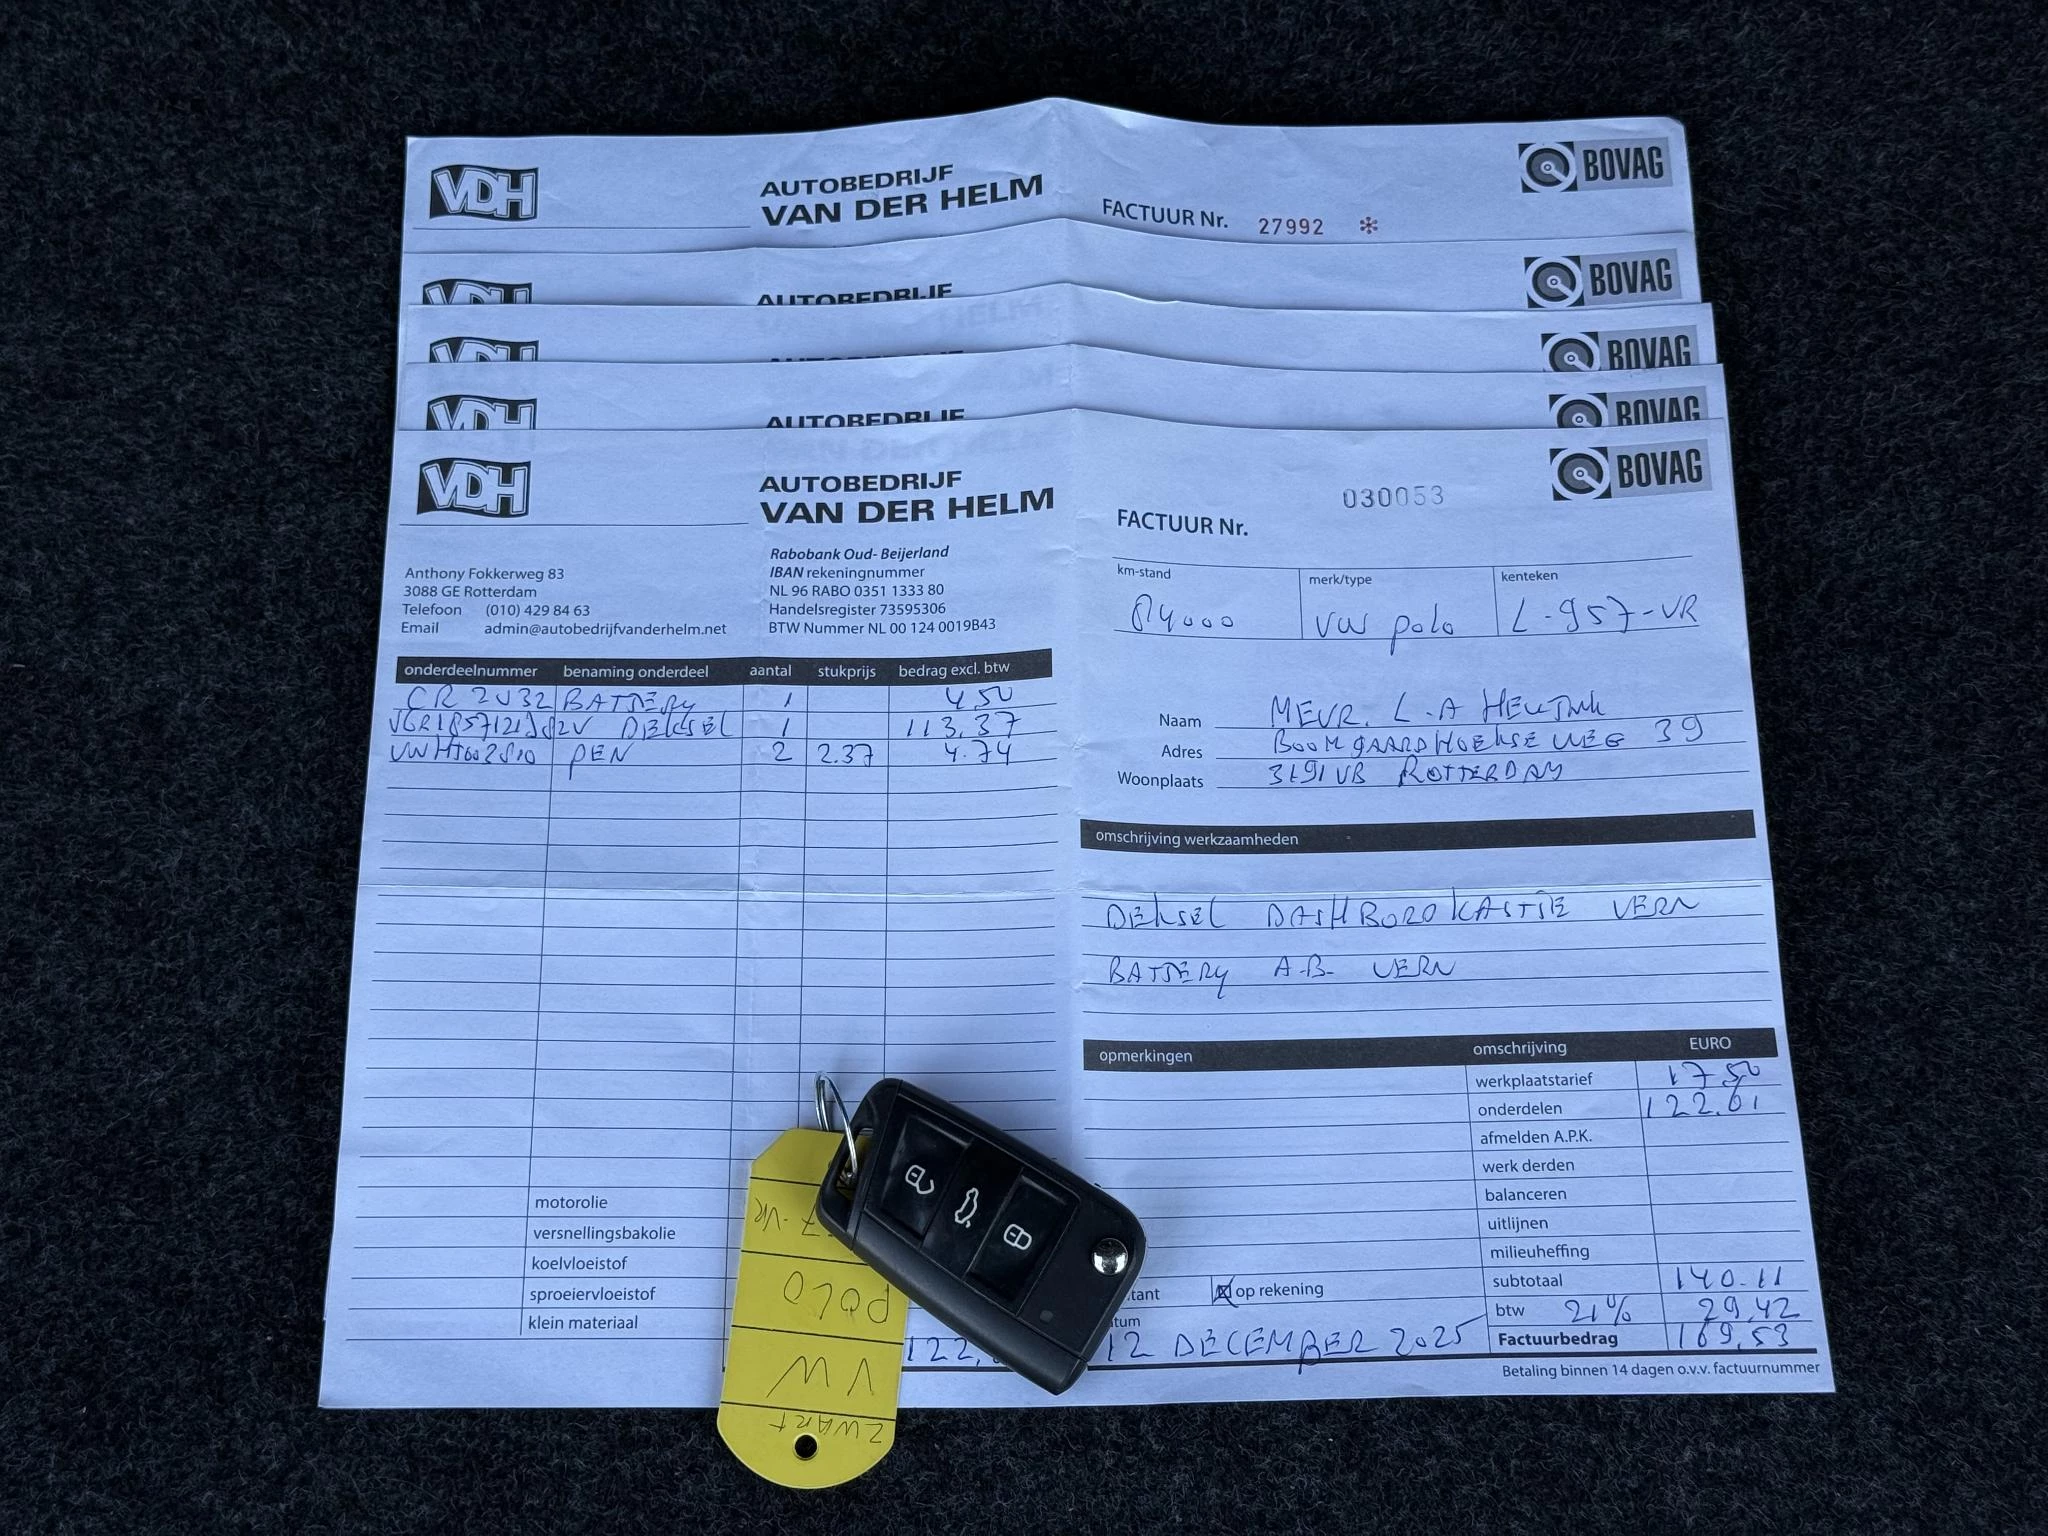 VDH
AUTOBEDRIJF
VAN DER HELM
FACTUUR Nr. 27992 *
BOVAG
VDH
AUTOBEDRIJF
BOVAG
VDH
BOVAG
VDH
AUTOBEDRIJF
BOVAG
VDH
AUTOBEDRIJF
VAN DER HELM
FACTUUR Nr.
030053
BOVAG
Anthony Fokkerweg 83
3088 GE Rotterdam
Telefoon (010) 429 84 63
Email admin@autobedrijfvanderhelm.net
Rabobank Oud- Beijerland
IBAN rekeningnummer
NL 96 RABO 0351 1333 80
Handelsregister 73595306
BTW Nummer NL 00 124 0019B43
km-stand merk/type kenteken
VW polo L-957-VR
onderdeelnummer benaming onderdeel aantal stukprijs bedrag excl. btw
CR 2032 BATTERY 1 4,50
DEKSEL 1 113,37
PEN 2 2.37 4.74
Naam MEVR. L.A
Adres BOOMGAARDHOEKSEWEG 39
Woonplaats 3191 VB ROTTERDAM
omschrijving werkzaamheden
DEKSEL DASHBORDKASTJE VERN
BATTERY A.B. VERN
opmerkingen
omschrijving EURO
werkplaatstarief 17,50
onderdelen 122.61
afmelden A.P.K.
werk derden
balanceren
uitlijnen
milieuheffing
subtotaal 140.11
btw 21% 29,42
Factuurbedrag 169,53
motorolie
versnellingsbakolie
koelvloeistof
sproeiervloeistof
klein materiaal
122,
tant op rekening
tum
12 DECEMBER 2025
Betaling binnen 14 dagen o.v.v. factuurnummer
ZWART
VW
POLO
7-VR